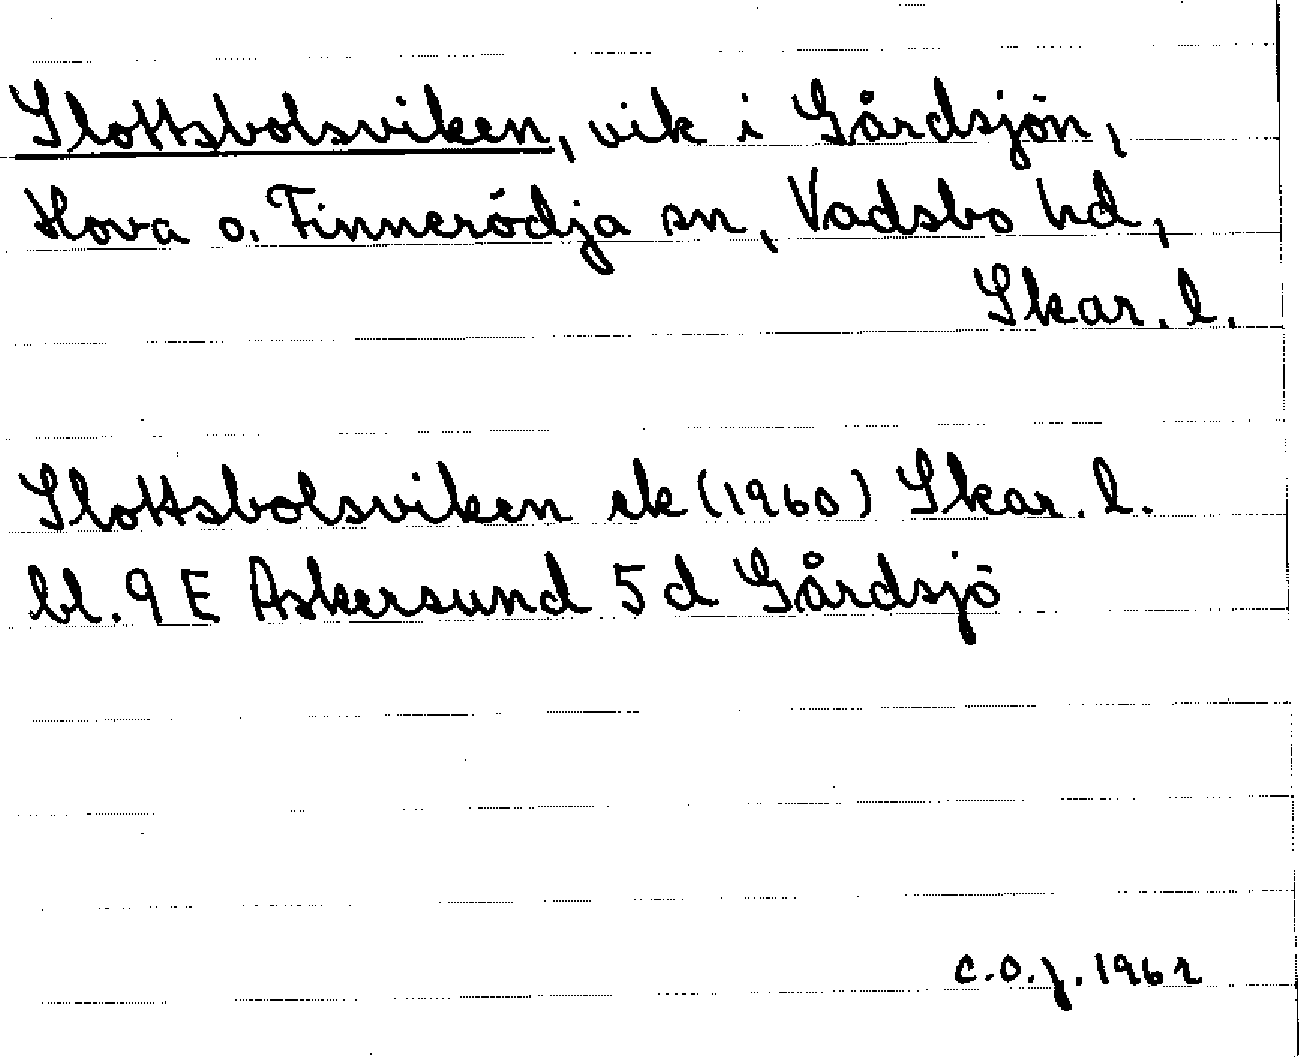 Slottsbolsviken, vik i Gårdsjön,
Hova o. Finnerödja sn, Vadsbo hd,
Skar. l.
Slottsbolsviken ek (1960) Skar. l.
bl. 9 E Askersund 5 d Gårdsjö
C.O.J. 1962